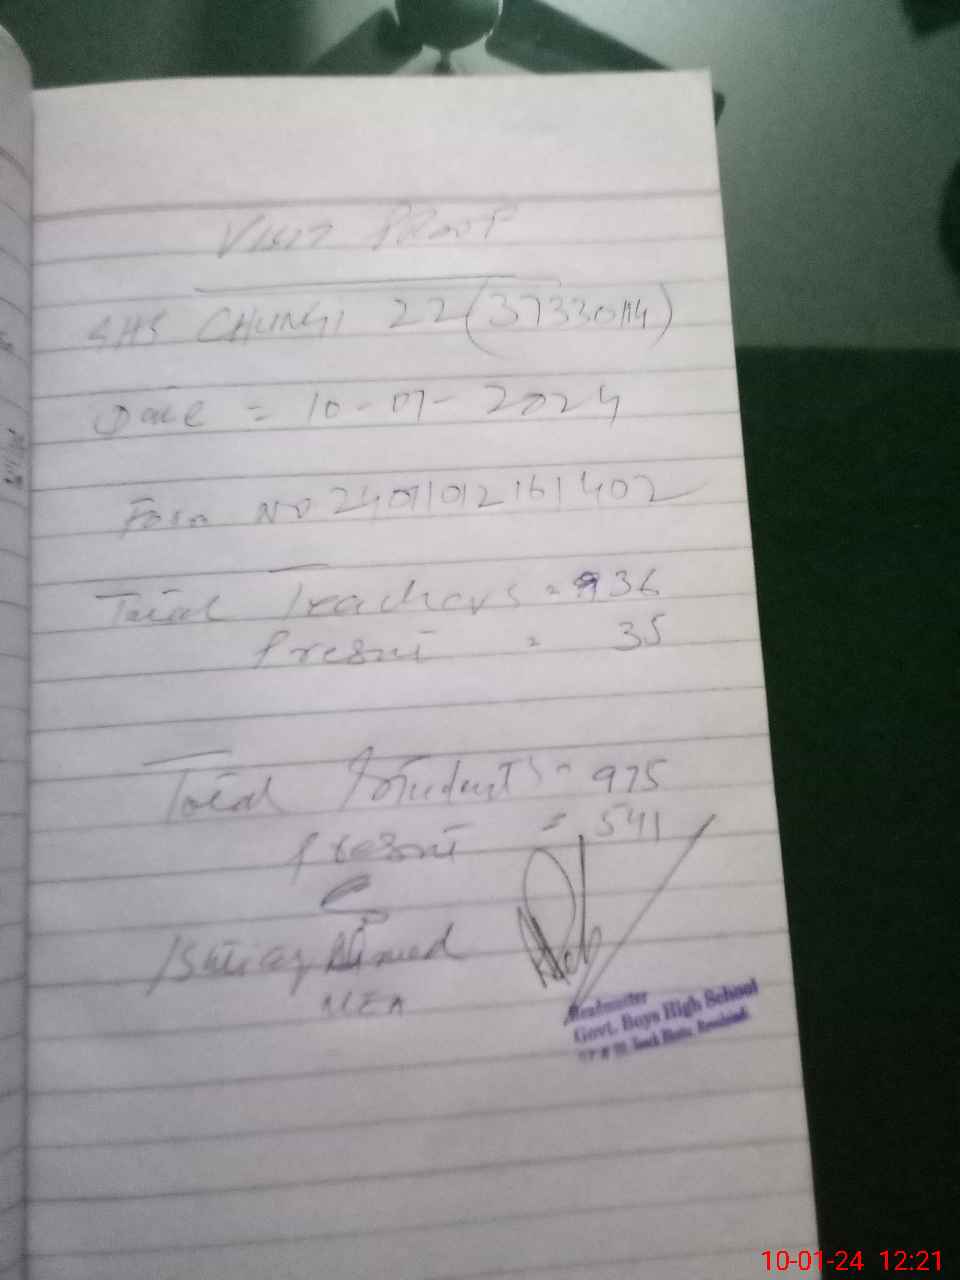 VISIT PROOF
GHS CHUNGI 22 (37330114)
Date = 10-01-2024
Form NO 24011012161402
Total Teachers = 36
Present = 35
Total Students = 975
Present = 541
Ishtiaq Ahmed
MEA
Headmaster
Govt. Boys High School
10-01-24 12:21